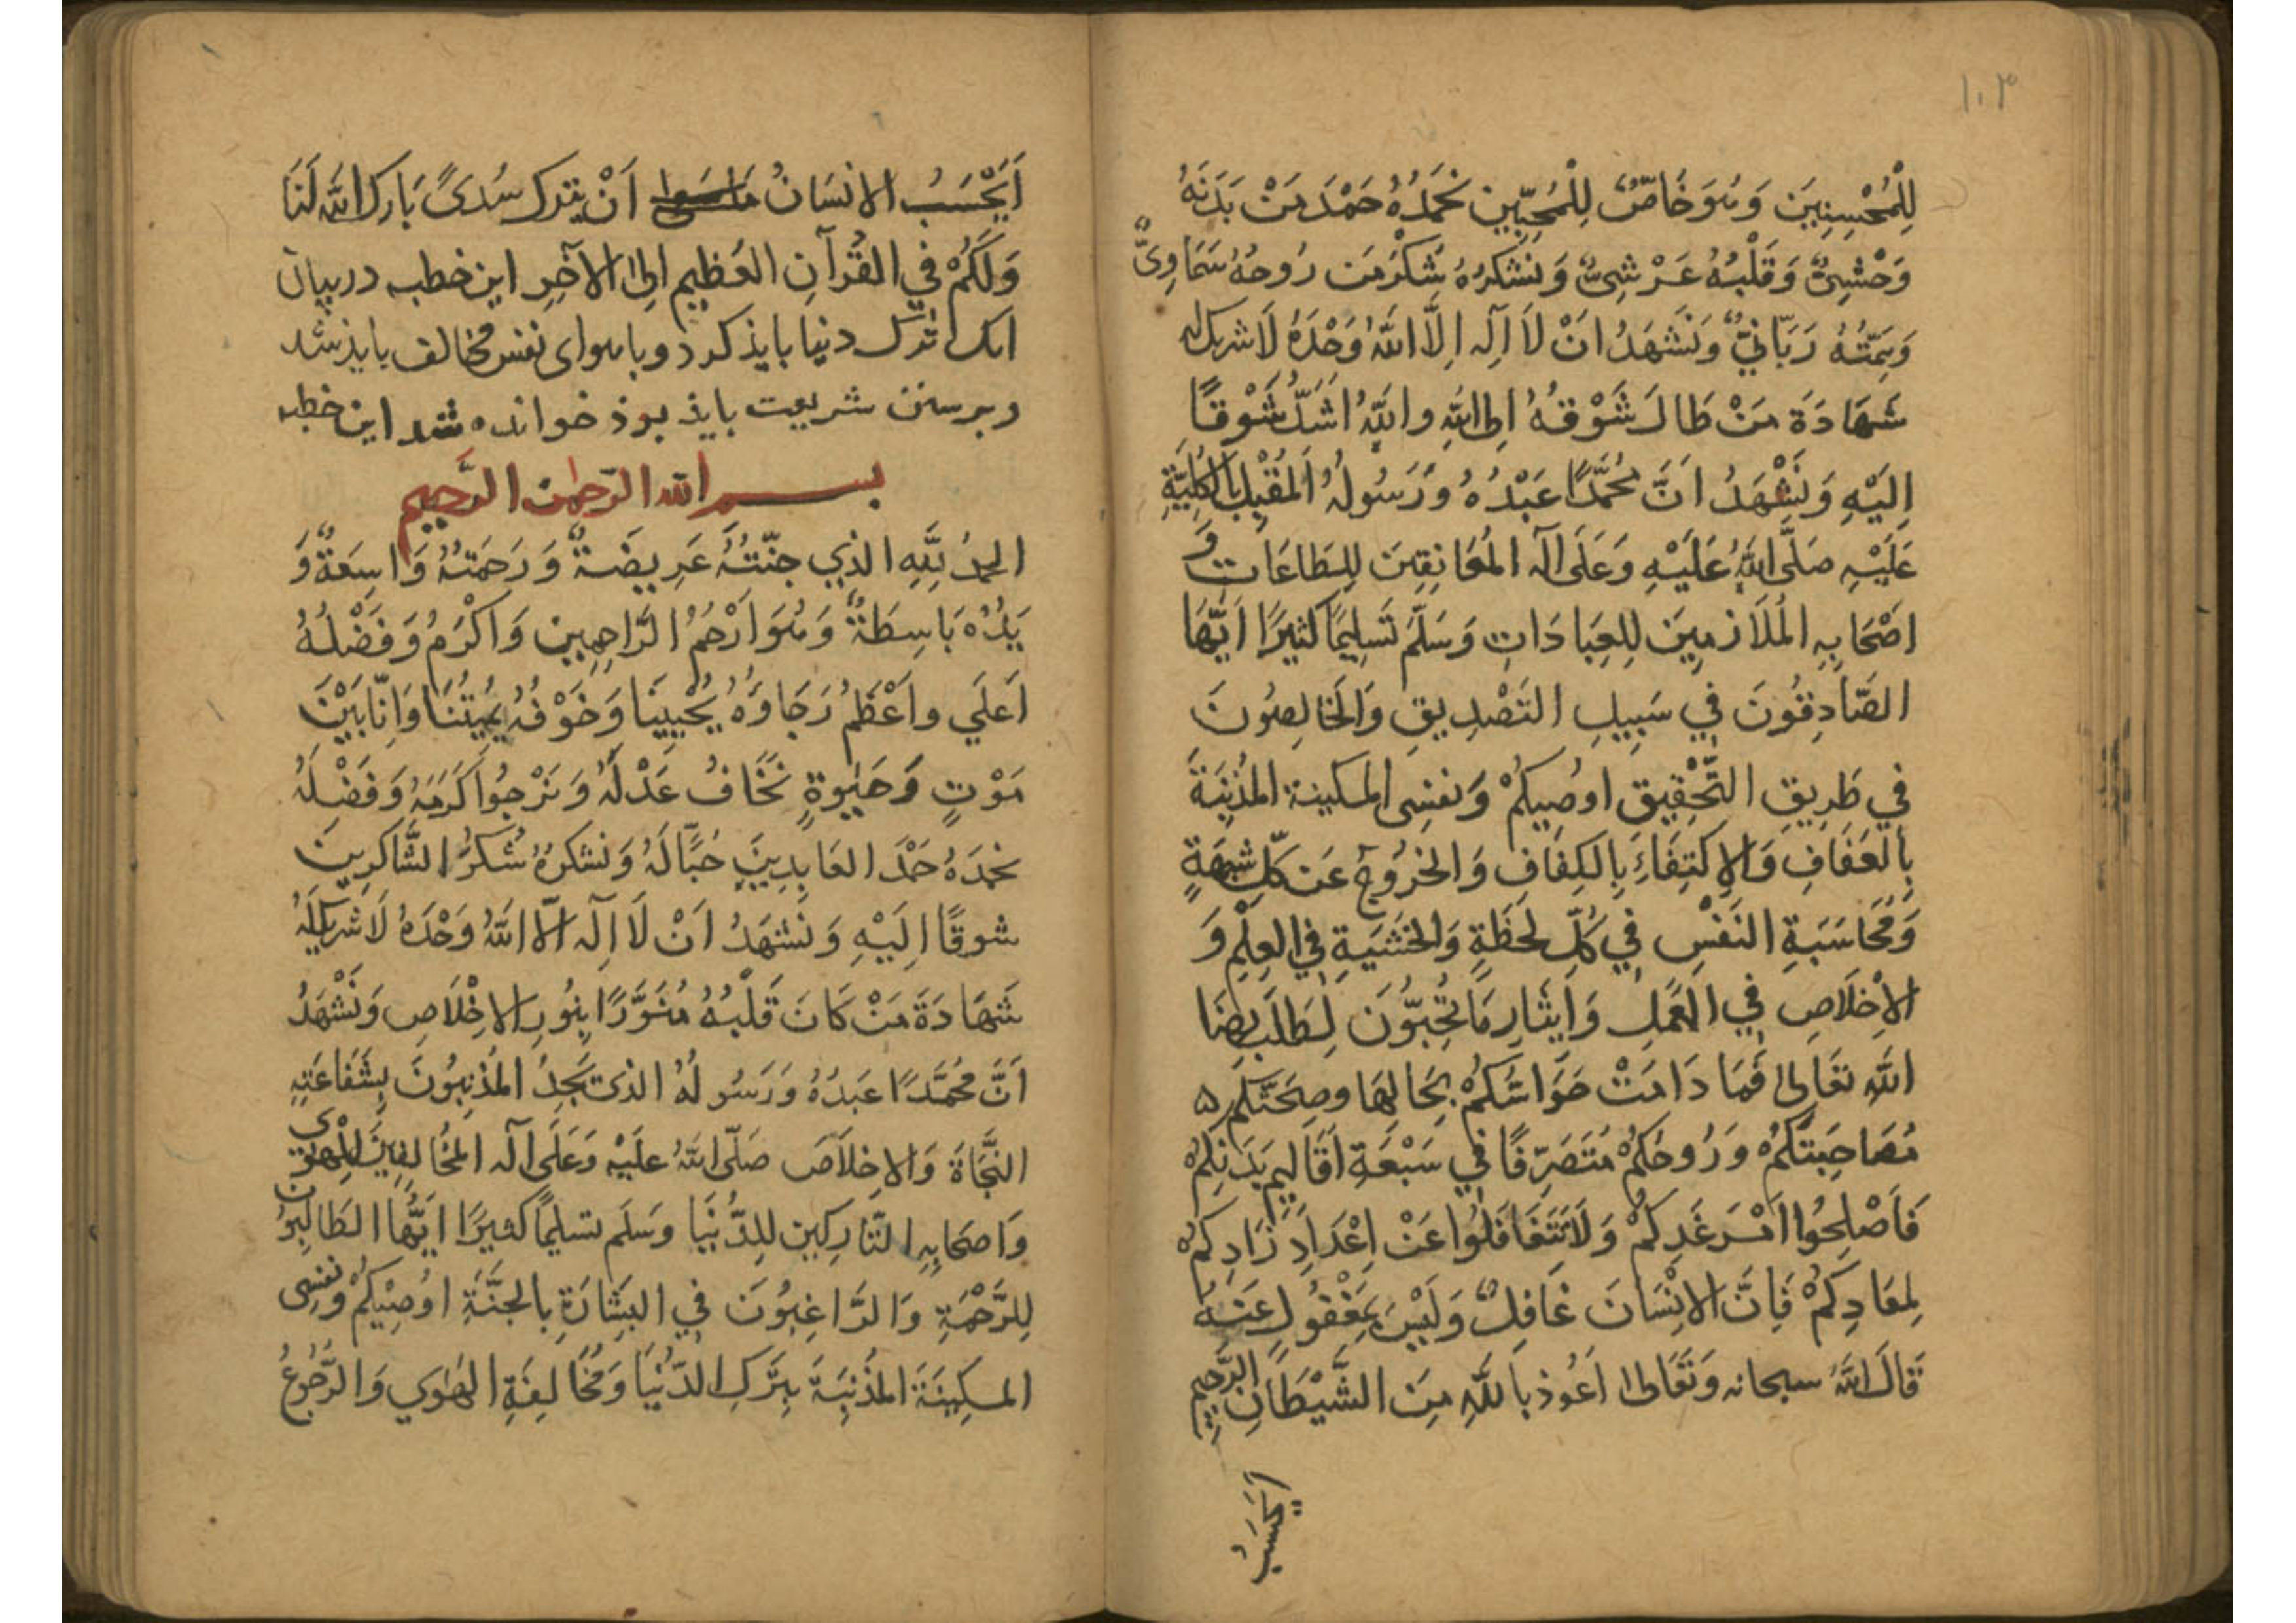 ١٠٣
لِلْمُحْسِنِينَ وَهُوَ خَاصٌّ لِلْمُحِبِّينَ نَحْمَدُهُ حَمْدَ مَنْ بَدَنُهُ
وَحْشِيٌّ وَقَلْبُهُ عَرْشِيٌّ وَنَشْكُرُهُ شُكْرَ مَنْ رُوحُهُ سَمَاوِيٌّ
وَهِمَّتُهُ رَبَّانِيٌّ وَنَشْهَدُ اَنْ لَا اِلَهَ اِلَّا اللَّهُ وَحْدَهُ لَا شَرِيكَ لَهُ
شَهَادَةَ مَنْ طَالَ شَوْقُهُ اِلَى اللَّهِ وَاللَّهُ اَشَدُّ شَوْقًا
اِلَيْهِ وَنَشْهَدُ اَنَّ مُحَمَّدًا عَبْدُهُ وَرَسُولُهُ الْمُقْبِلُ بِالْكُلِّيَّةِ
عَلَيْهِ صَلَّى اللَّهُ عَلَيْهِ وَعَلَى آلِهِ الْمُعَانِقِينَ لِلطَّاعَاتِ وَ
اَصْحَابِهِ الْمُلَازِمِينَ لِلْعِبَادَاتِ وَسَلَّمَ تَسْلِيمًا كَثِيرًا اَيُّهَا
الصَّادِقُونَ فِي سَبِيلِ التَّصْدِيقِ وَالْخَالِصُونَ
فِي طَرِيقِ التَّحْقِيقِ اوُصِيكُمْ وَنَفْسِى الْمِسْكِينَةَ الْمُذْنِبَةَ
بِالْعَفَافِ وَالْاِكْتِفَاءِ بِالْكَفَافِ وَالْخُرُوجِ عَنْ كُلِّ شُبْهَةٍ
وَمُحَاسَبَةِ النَّفْسِ فِي كُلِّ لَحْظَةٍ وَالْخَشْيَةِ فِي الْعِلْمِ وَ
الْاِخْلَاصِ فِي الْعَمَلِ وَاِيثَارِ مَا تُحِبُّونَ لِطَلَبِ رِضَا
اللَّهِ تَعَالَى فَمَا دَامَتْ حَوَاسُّكُمْ بِحَالِهَا وَصِحَّتُكُمْ
مُصَاحِبَتَكُمْ وَرُوحُكُمْ مُتَصَرِّفًا فِي سَبْعَةِ اَقَالِيمِ بَدَنِكُمْ
فَاَصْلِحُوا اَمْرَ غَدِكُمْ وَلَا تَتَغَافَلُوا عَنْ اِعْدَادِ زَادِكُمْ
لِمَعَادِكُمْ فَاِنَّ الْاِنْسَانَ غَافِلٌ وَلَيْسَ بِمَغْفُولٍ عَنْهُ
قَالَ اللَّهُ سبحانه وَتَعَالى اَعُوذ بِاللَّهِ مِنَ الشَّيْطَانِ الرَّجِيمِ
اَيَحْسَبُ
اَيَحْسَبُ الانْسَانُ اَنْ يُتْرَكَ سُدىً بَارَكَ اللَّهُ لَنَا
وَلَكُمْ فِي الْقُرْآنِ الْعَظِيمِ اِلَى الْآخِرِ اين خطبه در بيان
انك ترك دنيا بايذ كرد و با هواى نفس مخالف بايذ شد
و بر سنن شريعت بايذ بوذ خوانده شد اين خطبه
بسم الله الرّحمن الرَّحيم
الحمدُ لِلَّهِ الذي جنّتُهُ عَرِيضَةٌ وَرَحْمَتُهُ وَاسِعَةٌ وَ
يَدُهُ بَاسِطَةٌ وَهُوَ اَرْحَمُ الرَّاحِمِينَ وَاَكْرَمُ وَفَضْلُهُ
اَعلَي واَعْظَمُ رَجَاوُهُ يُحْيِينَا وَخَوْفُهُ يُمِيتُنَا وَاِنَّا بَيْنَ
مَوْتٍ وَحَيٰوةٍ نَخَافُ عَدْلَهُ وَنَرْجُوا كَرَمَهُ وَفَضْلَهُ
نحمَدُهُ حَمْدَ العَابِدِينَ حُبًّا لَهُ وَنَشكرُهُ شُكْرَ الشَّاكِرِينَ
شوقًا اِلَيْهِ وَنَشْهَدُ اَنْ لَا اِلَه الَّا اللَّهُ وَحْدَهُ لَا شَرِيكَ لَهُ
شَهَادَةَ مَنْ كَانَ قَلْبُهُ مُنَوَّرًا بِنُورِ الاِخْلَاصِ وَنَشْهَدُ
اَنَّ مُحَمَّدًا عَبدُهُ وَرَسُولُهُ الذى يَجِدُ المُذْنِبُونَ بِشَفَاعَتِهِ
النَّجَاةَ وَالاِخلَاصَ صَلَّى اللَّهُ علَيْهِ وَعَلَى آلِه المُخَالِفِينَ لِلْهَوٰى
وَاصحَابِهِ التَّارِكِين لِلدُّنْيَا وسَلَّم تسليمًا كثيرًا اَيُّهَا الطَّالِبُونَ
لِلرَّحْمَةِ وَالرَّاغِبُونَ فِي البِشَارَةِ بِالجَنَّةِ اوُصِيْكُمْ وَنَفسِى
المِسكِينَةَ المُذْنِبَةَ بِتَرْكِ الدُّنْيَا وَمُخَالِفَةِ الهَوٰي وَالرُّجُوعُ